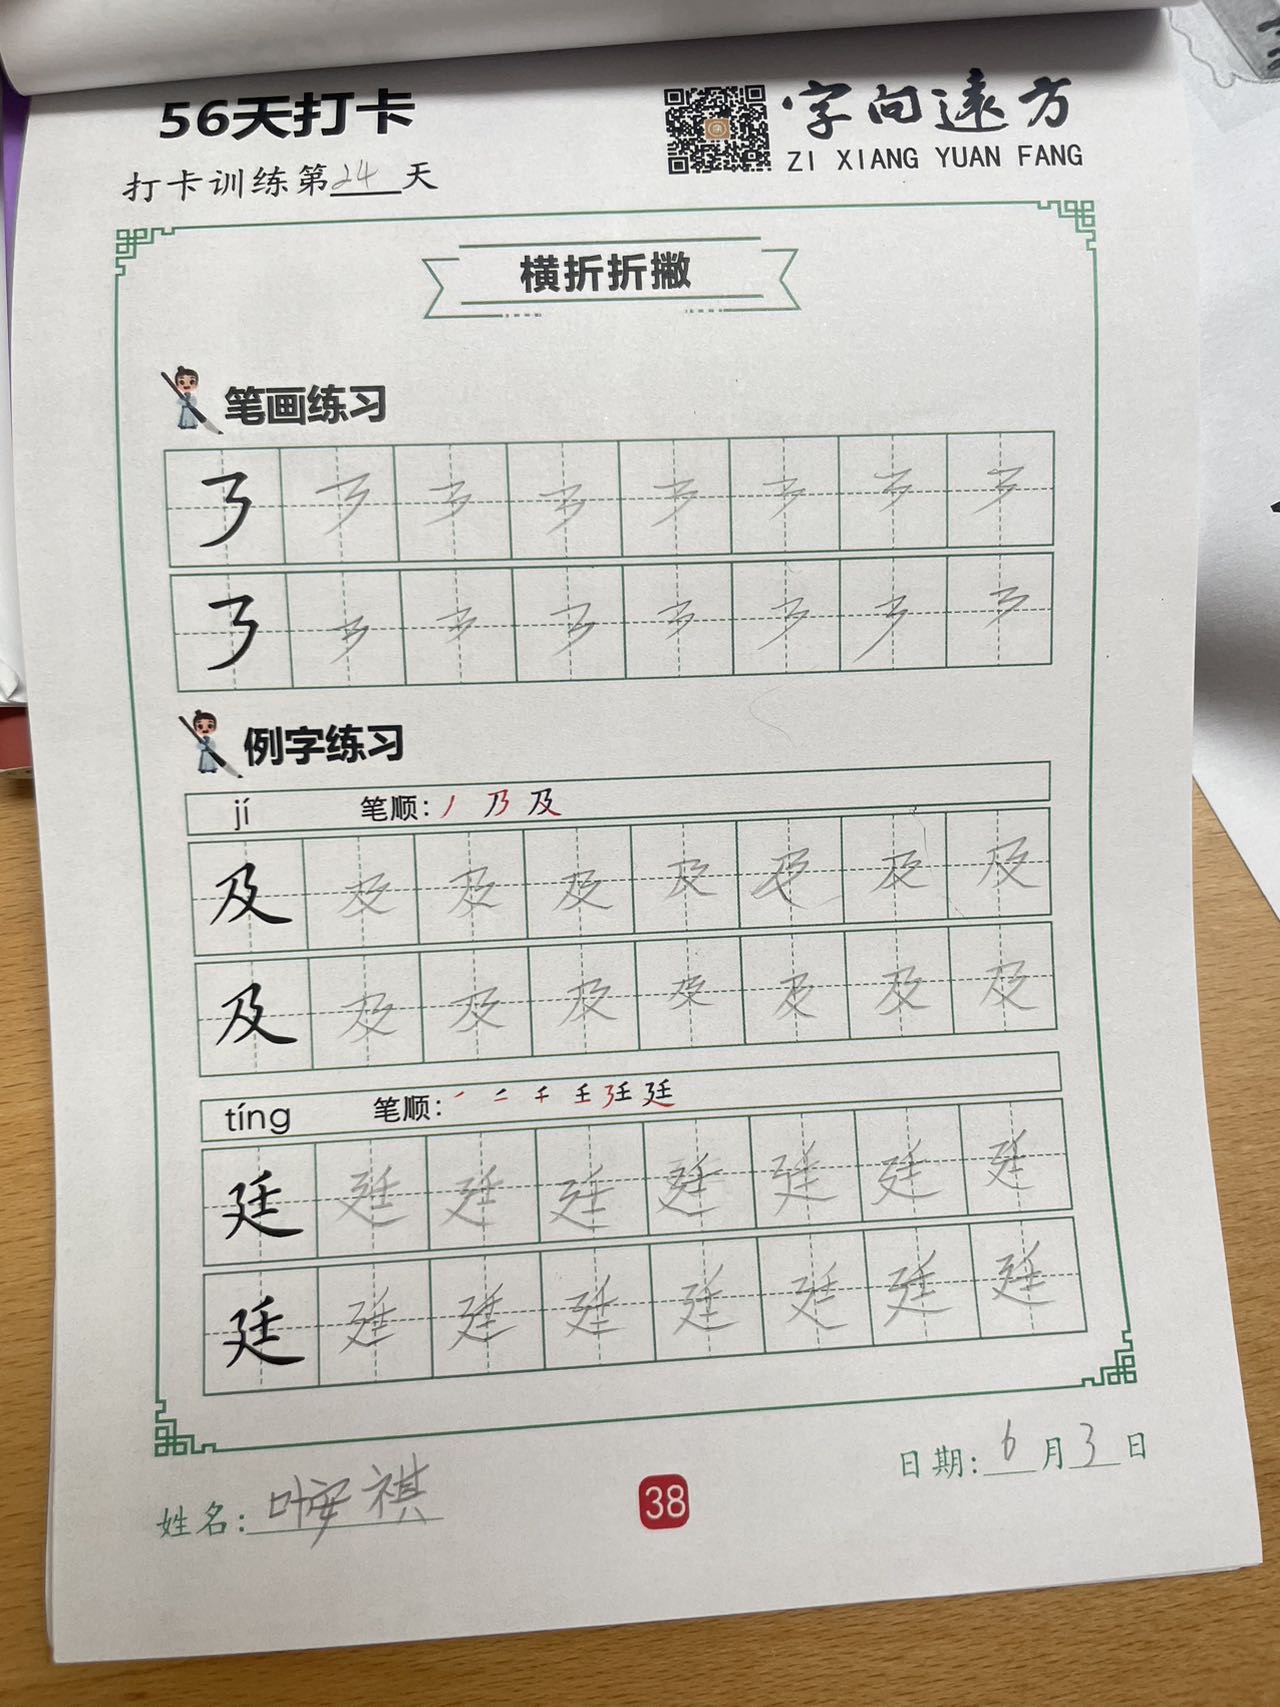 56天打卡
字向遠方
ZI XIANG YUAN FANG
打卡训练第24天
横折折撇
笔画练习
例字练习
jí 笔顺: 丿 乃 及
及 及 及 及 及 及 及 及
及 及 及 及 及 及 及 及
tíng 笔顺: 廷
廷 廷 廷 廷 廷 廷 廷 廷
廷 廷 廷 廷 廷 廷 廷 廷
姓名: 叶安祺
38
日期: 6月3日